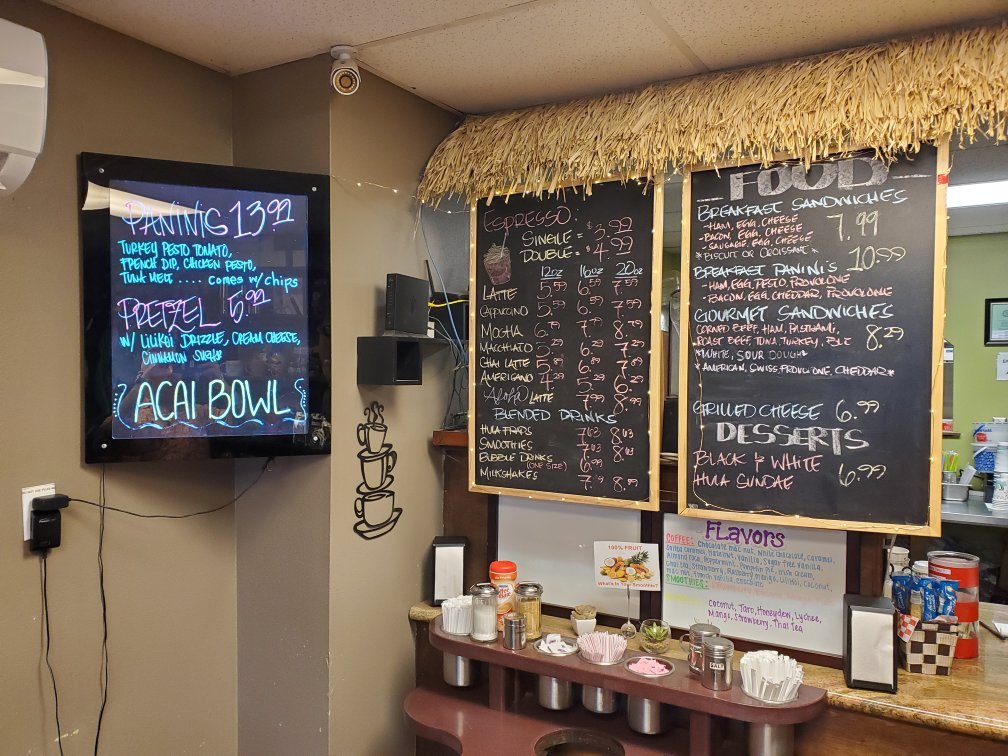 PANINIS 13.99
TURKEY PESTO TOMATO,
FRENCH DIP, CHICKEN PESTO,
TUNA MELT .... COMES W/ CHIPS
PRETZEL 5.99
W/ LILIKOI DRIZZLE, CREAM CHEESE,
CINNAMON SUGAR
ACAI BOWL
ESPRESSO:
SINGLE = $3.99
DOUBLE = $4.99
12oz 16oz 20oz
LATTE 5.59 6.59 7.59
CAPPUCCINO
MOCHA 8.79
MACCHIATO 5.29 6.29 7.29
CHAI LATTE
AMERICANO 4.29 5.29 6.29
ALOHA LATTE 7.99 8.99
BLENDED DRINKS
HULA FRAPS 7.03 8.03
SMOOTHIES 7.03 8.03
BUBBLE DRINKS 6.99
(ONE SIZE)
MILKSHAKES 8.99
FOOD
BREAKFAST SANDWICHES
-HAM, EGG, CHEESE 7.99
-BACON, EGG, CHEESE
-SAUSAGE, EGG, CHEESE
*BISCUIT OR CROISSANT*
BREAKFAST PANINI'S 10.99
-HAM, EGG, PESTO, PROVOLONE
-BACON, EGG, CHEDDAR, PROVOLONE
GOURMET SANDWICHES
CORNED BEEF, HAM, PASTRAMI, 8.29
ROAST BEEF, TUNA, TURKEY, BLT
*WHITE, SOUR DOUGH*
*AMERICAN, SWISS, PROVOLONE, CHEDDAR*
GRILLED CHEESE 6.99
DESSERTS
BLACK & WHITE 6.99
HULA SUNDAE
100% FRUIT
What's In Your Smoothie?
Flavors
COFFEE: Chocolate mac nut, White chocolate, caramel,
Salted caramel, Hazelnut, Vanilla, Sugar free vanilla,
Almond roca, Peppermint, Pumpkin pie, Irish cream,
Chai tea, Strawberry, Raspberry, mango, Lilikoi, Coconut,
mac nut, French vanilla,
SMOOTHIES:
Coconut, Taro, Honeydew, Lychee,
Mango, Strawberry, Thai Tea
SALT